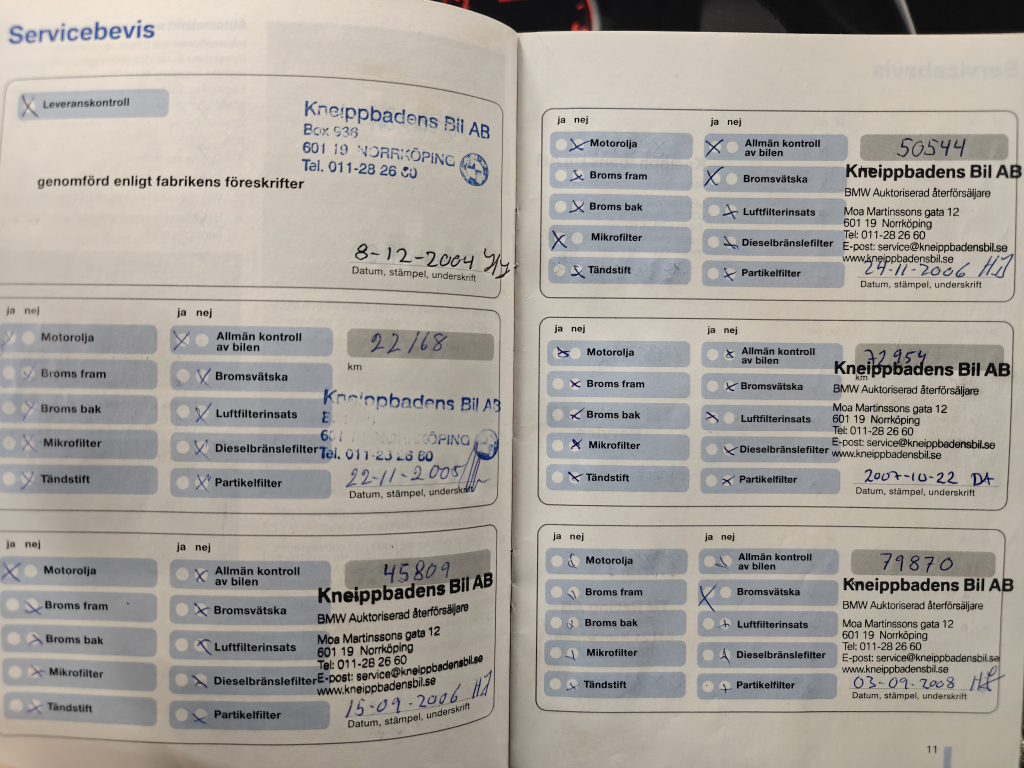 Servicebevis
Leveranskontroll
genomförd enligt fabrikens föreskrifter
Kneippbadens Bil AB
Box 936
601 19 NORRKÖPING
Tel. 011-28 26 60
8-12-2004
Datum, stämpel, underskrift
ja nej
ja nej
Motorolja
Broms fram
Broms bak
Mikrofilter
Tändstift
Allmän kontroll
av bilen
Bromsvätska
Luftfilterinsats
Dieselbränslefilter
Partikelfilter
22168
km
Kneippbadens Bil AB
NORRKÖPING
Tel. 011-28 26 60
22-11-2005
Datum, stämpel, underskrift
ja nej
ja nej
Motorolja
Broms fram
Broms bak
Mikrofilter
Tändstift
Allmän kontroll
av bilen
Bromsvätska
Luftfilterinsats
Dieselbränslefilter
Partikelfilter
45809
Kneippbadens Bil AB
BMW Auktoriserad återförsäljare
Moa Martinssons gata 12
601 19 Norrköping
Tel: 011-28 26 60
E-post: service@kneippbadensbil.se
www.kneippbadensbil.se
15-09-2006 HJ
Datum, stämpel, underskrift
ja nej
ja nej
Motorolja
Broms fram
Broms bak
Mikrofilter
Tändstift
Allmän kontroll
av bilen
Bromsvätska
Luftfilterinsats
Dieselbränslefilter
Partikelfilter
50544
Kneippbadens Bil AB
BMW Auktoriserad återförsäljare
Moa Martinssons gata 12
601 19 Norrköping
Tel: 011-28 26 60
E-post: service@kneippbadensbil.se
www.kneippbadensbil.se
24-11-2006 HJ
Datum, stämpel, underskrift
ja nej
ja nej
Motorolja
Broms fram
Broms bak
Mikrofilter
Tändstift
Allmän kontroll
av bilen
Bromsvätska
Luftfilterinsats
Dieselbränslefilter
Partikelfilter
72954
km
Kneippbadens Bil AB
BMW Auktoriserad återförsäljare
Moa Martinssons gata 12
601 19 Norrköping
Tel: 011-28 26 60
E-post: service@kneippbadensbil.se
www.kneippbadensbil.se
2007-10-22 DA
Datum, stämpel, underskrift
ja nej
ja nej
Motorolja
Broms fram
Broms bak
Mikrofilter
Tändstift
Allmän kontroll
av bilen
Bromsvätska
Luftfilterinsats
Dieselbränslefilter
Partikelfilter
79870
Kneippbadens Bil AB
BMW Auktoriserad återförsäljare
Moa Martinssons gata 12
601 19 Norrköping
Tel: 011-28 26 60
E-post: service@kneippbadensbil.se
www.kneippbadensbil.se
03-09-2008
Datum, stämpel, underskrift
11